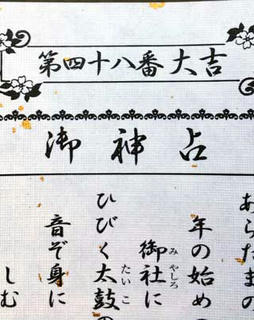 第四十八番大吉
御神占
あらたまの
年の始め
御社に
みやしろ
ひびく太鼓
たいこ
音ぞ身に
しむ